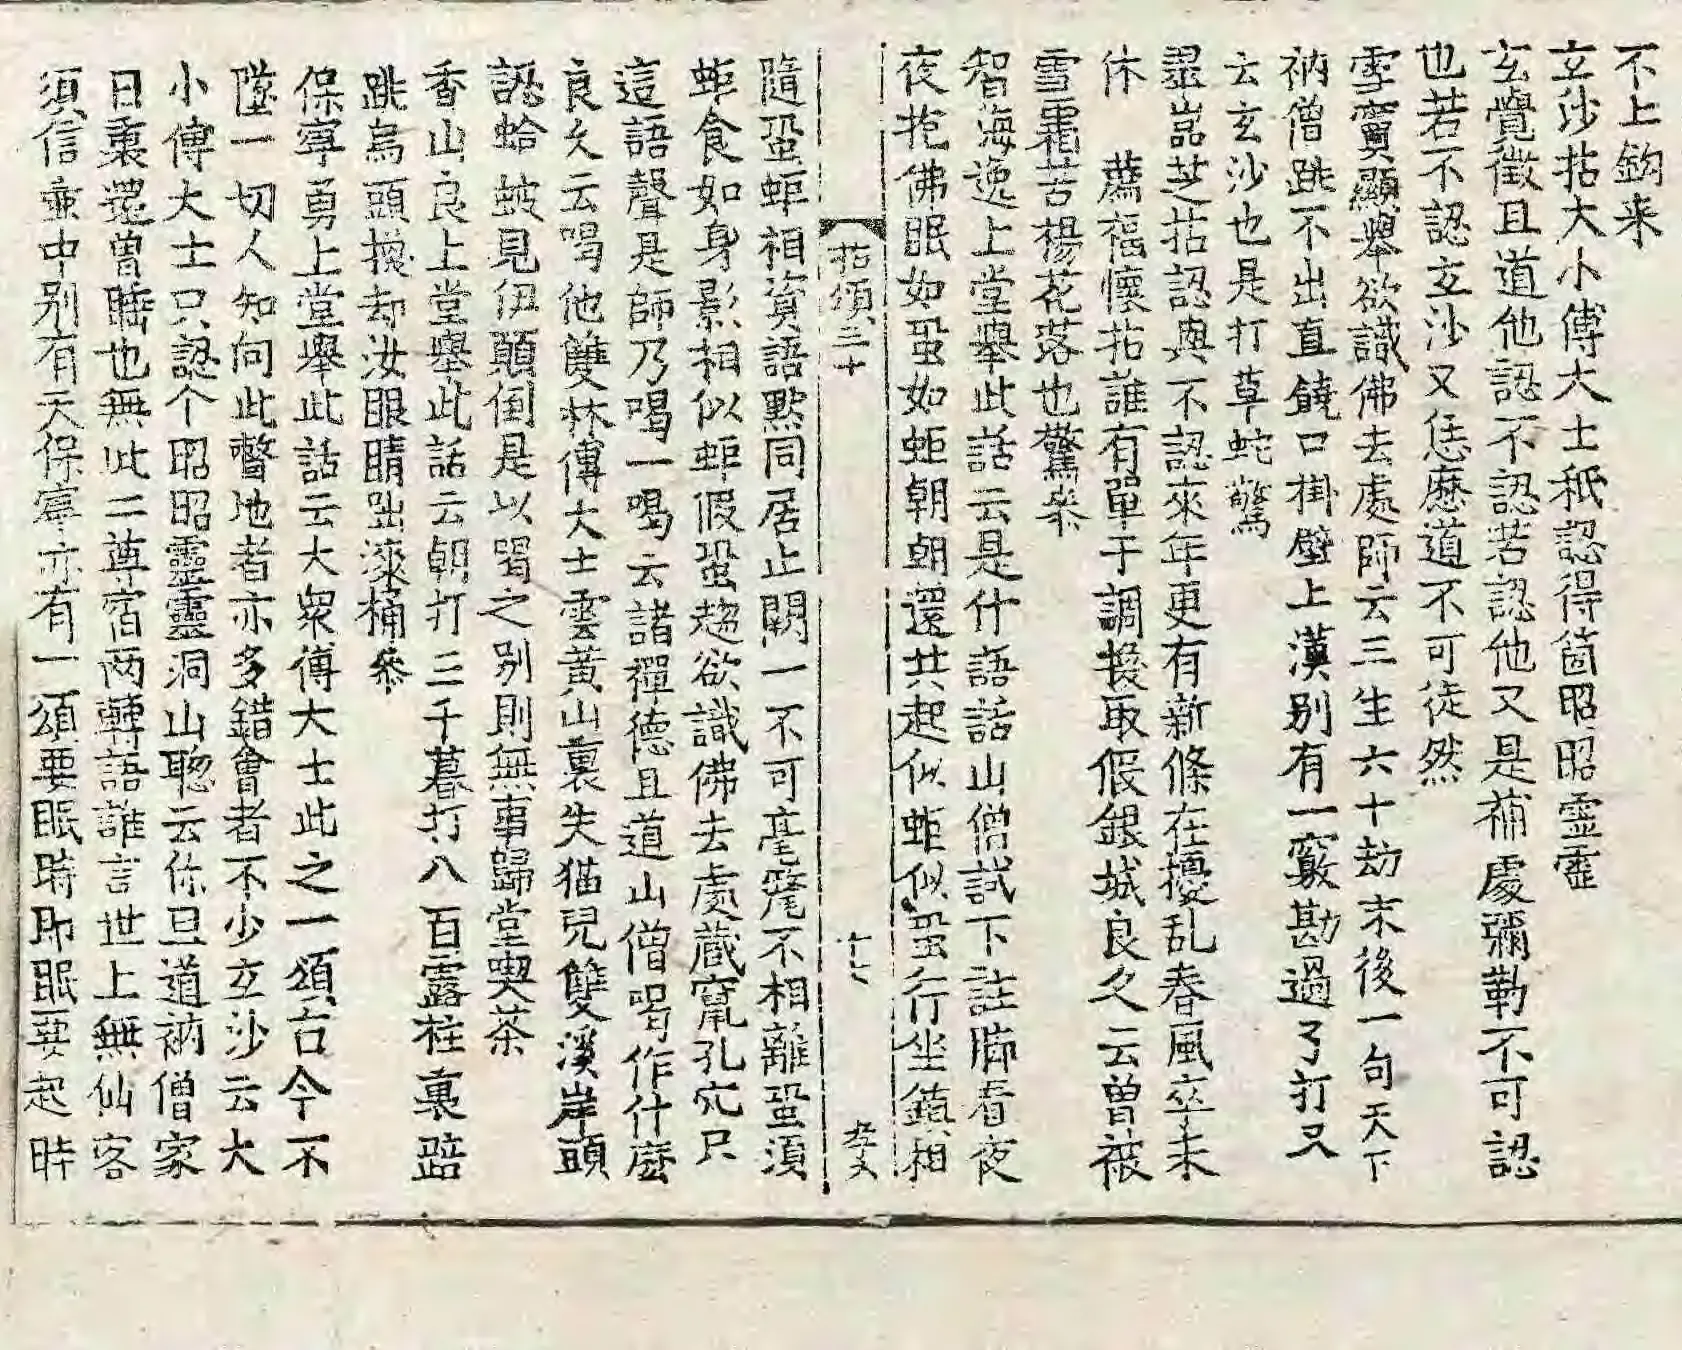 不上鈎来
玄沙拈大小傅大士秖認得箇昭昭霊霊
玄覺徵且道他認不認若認他又是補處彌勒不可認
也若不認玄沙又恁麽道不可徒然
雪竇顯舉欲識佛去處師云三生六十劫末後一句天下
衲僧跳不出直饒口掛壁上漢別有一竅勘過了打又
云玄沙也是打草蛇驚
瑯嵓芝拈認與不認來年更有新條在擾乱春風卒未
休　薦福懷拈誰有單于調換取假銀城良久云曾被
雪霜苦楊花落也驚叅
智海逸上堂舉此話云是什語話山僧試下註脚看夜
夜抱佛眠如蛩如蚷朝朝還共起似蚷似蛩行坐鎮相
拈頌三十　十七　孝文
隨蛩蚷相資語默同居止闕一不可毫氂不相離蛩須
蚷食如身影相似蚷假蛩趍欲識佛去處蔵竄孔穴只
這語聲是師乃喝一喝云諸禪德且道山僧喝作什麽
良久云喝他雙林傅大士雲黄山裏失猫兒雙溪岸頭
認蛤蚾見伊顛倒是以喝之別則無事歸堂喫茶
香山良上堂舉此話云朝打三千暮打八百露柱裏踣
跳烏頭換却汝眼睛𨁝漆桶叅
保寧勇上堂舉此話云大衆傅大士此之一頌古今不
墜一切人知向此瞥地者亦多錯會者不少玄沙云大
小傅大士只認个昭昭靈靈洞山聦云你且道衲僧家
日裏還曾睡也無此二尊宿両轉語誰言世上無仙客
須信壷中別有天保寧亦有一頌要眠時即眠要起時